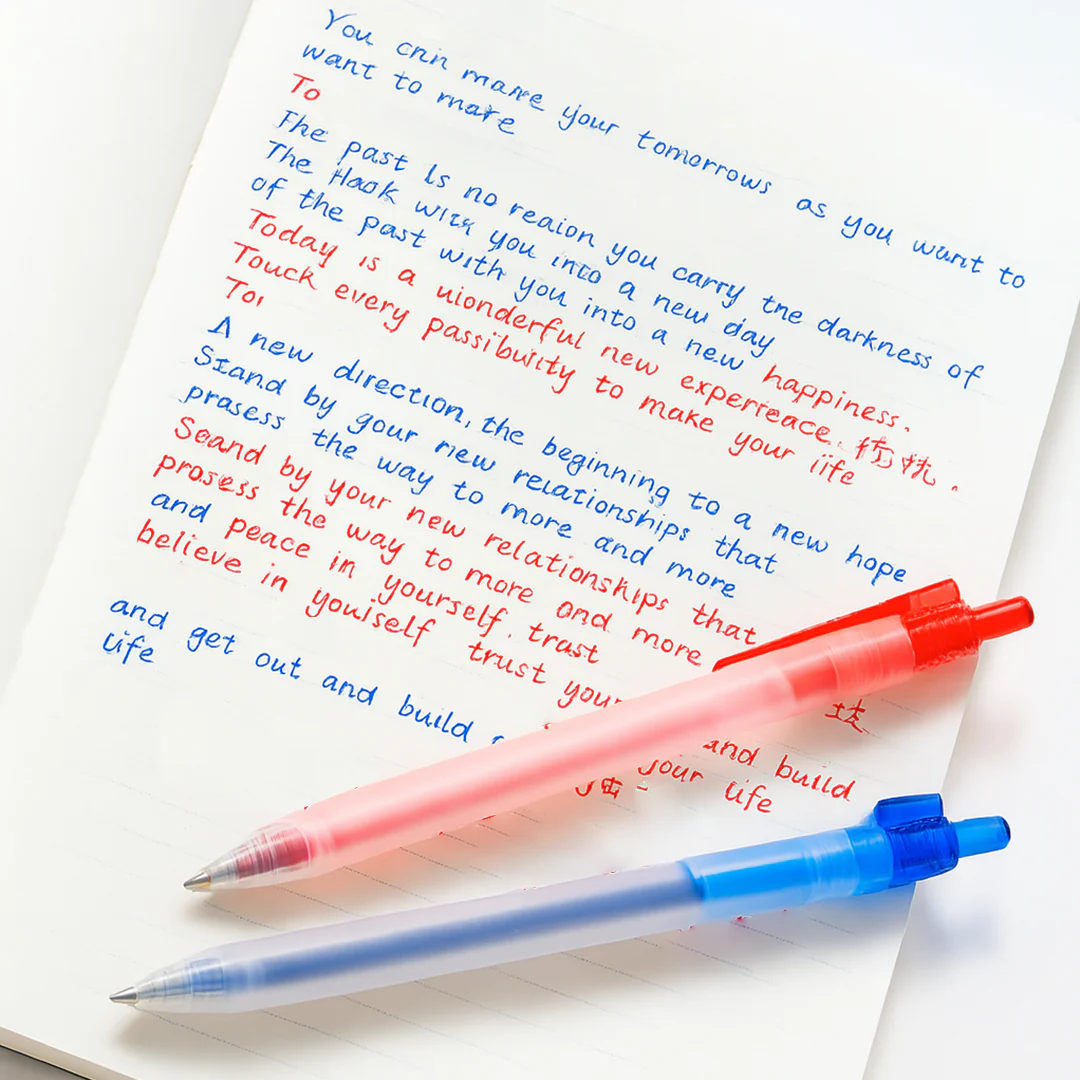 You cnn mane your tomorrows as you want to
want to mare
To
The past is no reaion you carry tne darkness of
The Haok with you into a new day
of the past with you into a new happiness.
Today is a wonderful new experieace.
Touck every passibuiity to make your iife
To
A new direction, the beginning to a new hope
Stand by gour new relationships that
prasess the way to more and more
Seand by your new relationships that
prosess the way to more and more
and peace in yourself. trast
believe in youiself trust your
and build
and get out and build
your life
life